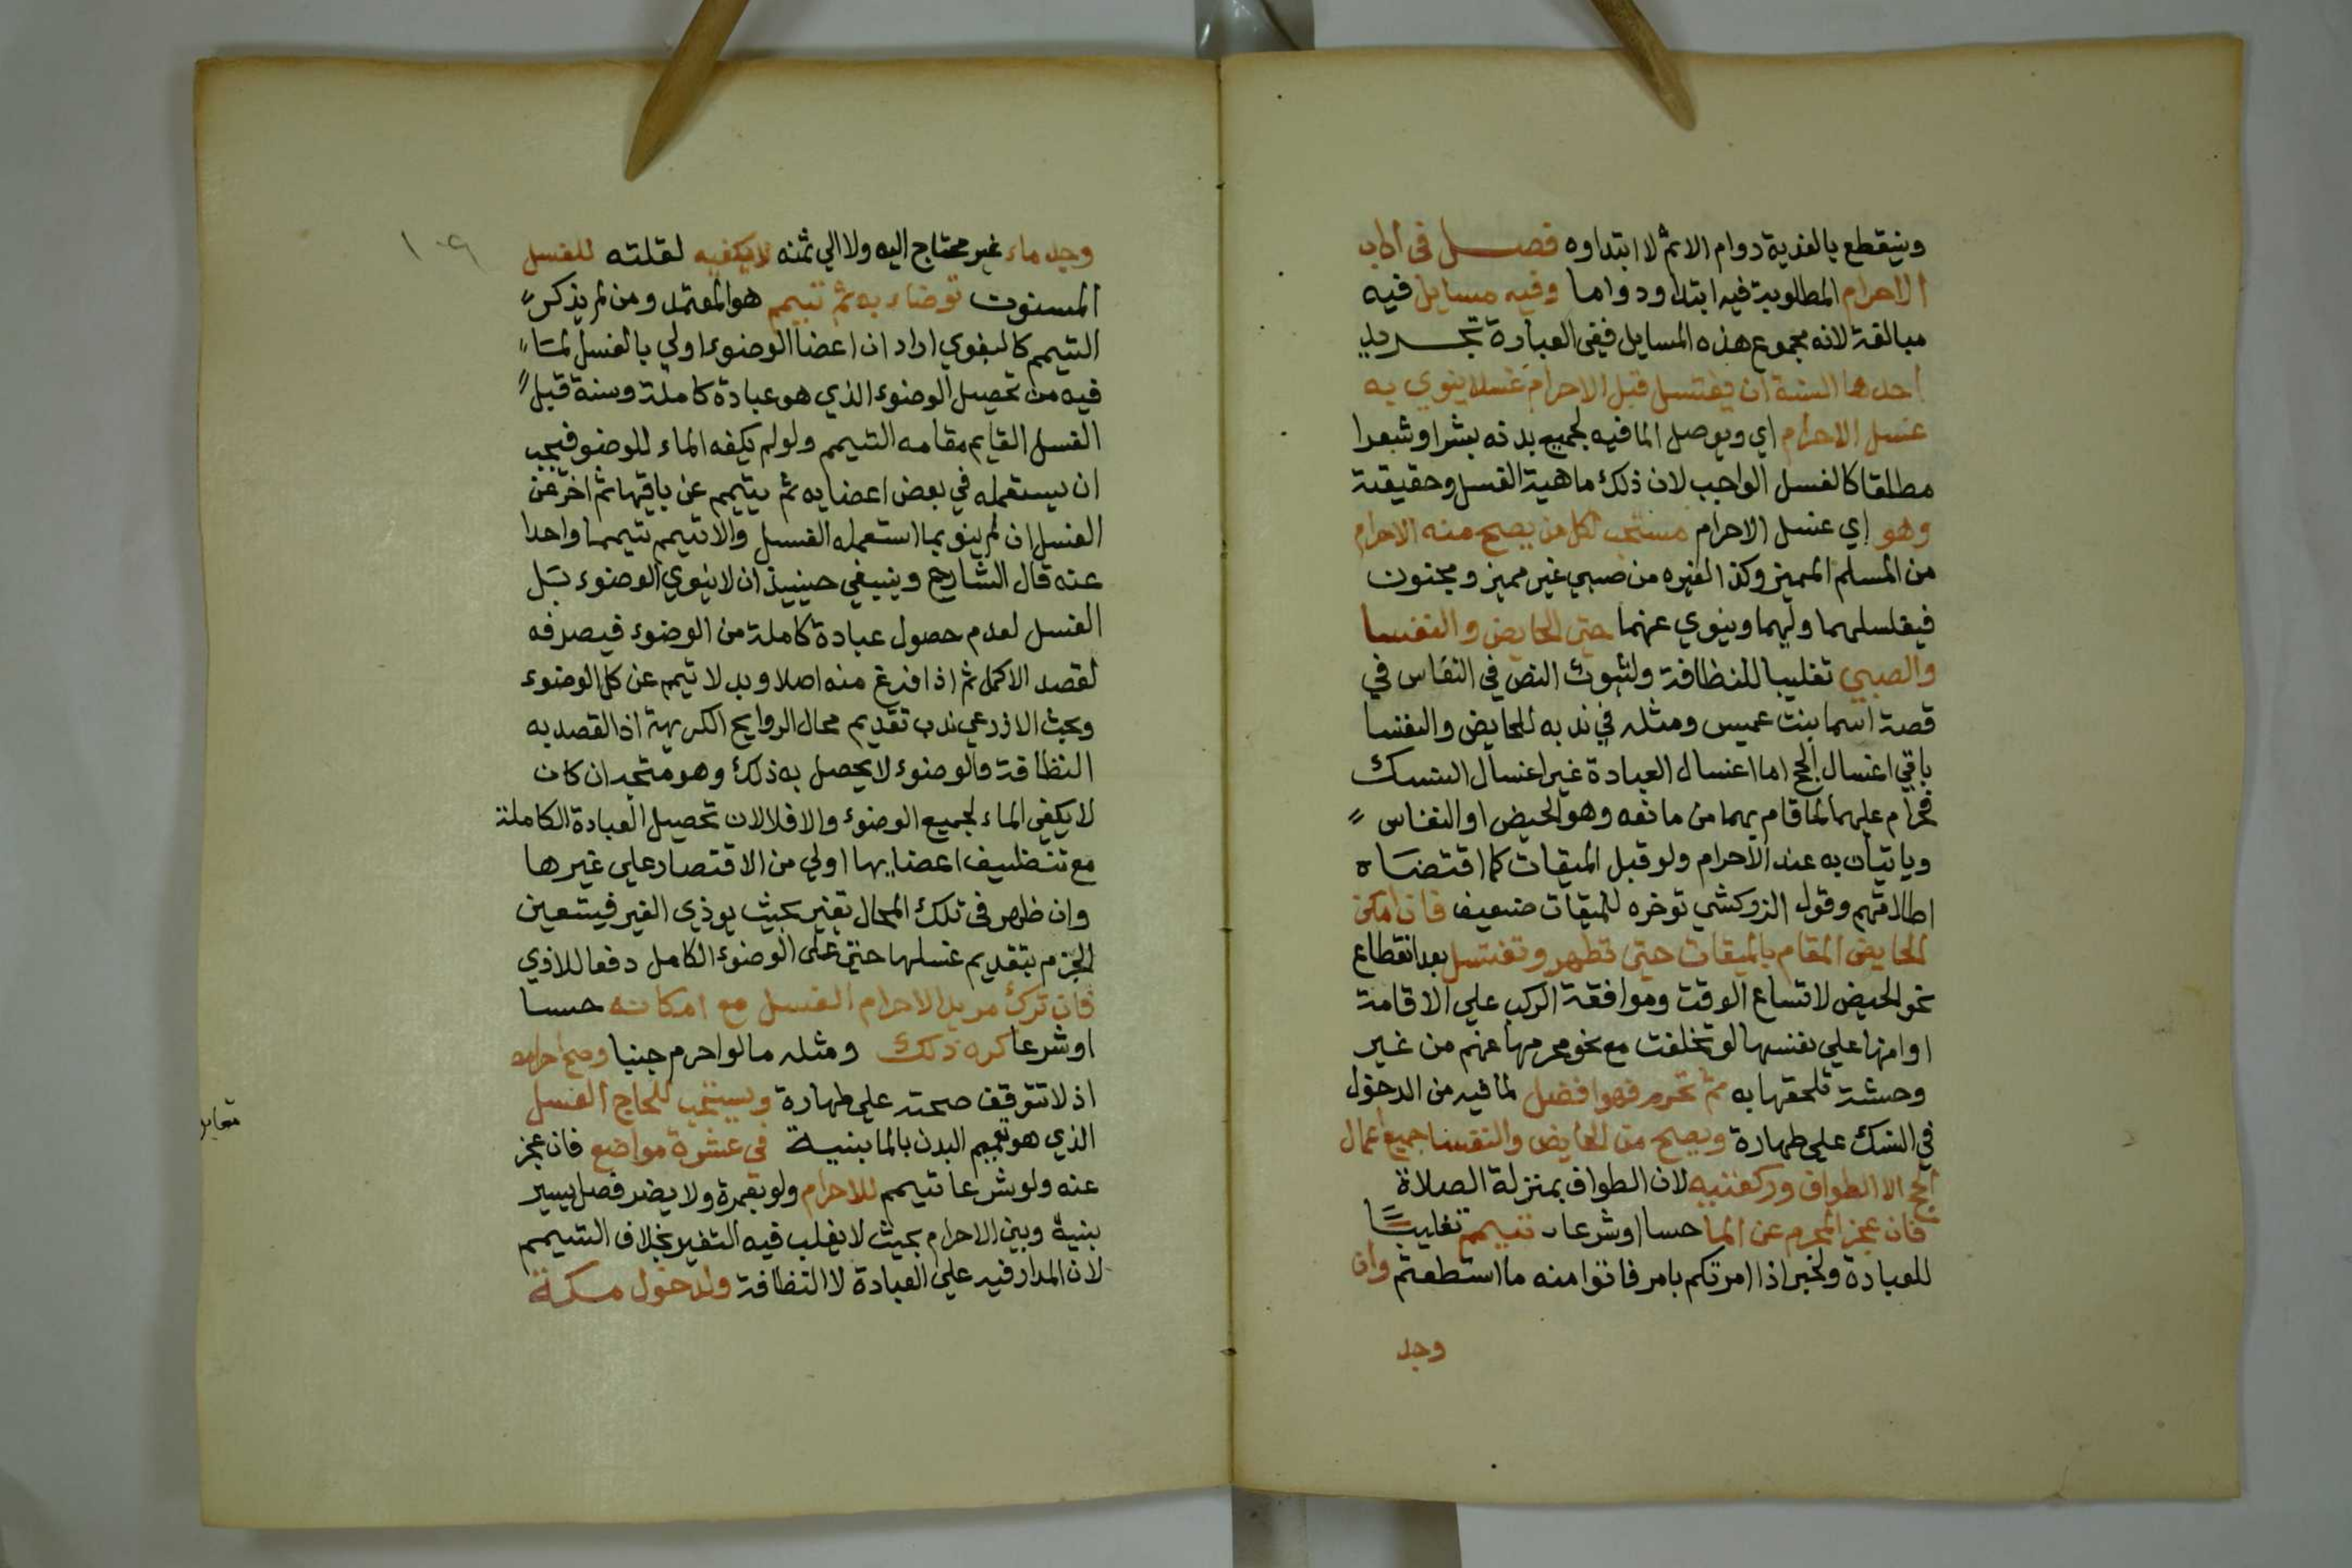 وينقطع بالفدية دوام الاثم لا ابتداوه فصل في اداب
الاحرام المطلوبة فيه ابتدا ودواما وفيه مسايل فيه
مبالغة لانه مجموع هذه المسايل ففي العبارة تجريد
احدها السنة ان يغتسل قبل الاحرام غسلا ينوي به
غسل الاحرام اي ويوصل الما فيه لجميع بدنه بشرا وشعرا
مطلقا كالغسل الواجب لان ذلك ماهية الغسل وحقيقته
وهو اي غسل الاحرام مستحب لكل من يصح منه الاحرام
من المسلم المميز وكذا لغيره من صبي غير مميز ومجنون
فيغلسلهما وليهما وينوي عنهما حتى الحايض والنفسا
والصبي تغليبا للنظافة ولثبوت النص في النفاس في
قصة اسما بنت عميس ومثله في ندبه للحايض والنفسا
باقي اغسال الحج اما اغسال العبادة غير اغسال النسك
فحرام عليهما لما قام بهما من مانعه وهو الحيض او النفاس
وياتيان به عند الاحرام ولو قبل الميقات كما اقتضاه
اطلاقهم وقول الزركشي توخره للميقات ضعيف فان امكن
الحايض المقام بالميقات حتى تطهر وتغتسل بعد انقطاع
نحو الحيض لاتساع الوقت وموافقة الركب علي الاقامة
او امنها علي نفسها لو تخلفت مع نحو محرمها عنهم من غير
وحشة تلحقها به ثم تحرم فهو افضل لما فيه من الدخول
في النسك علي طهارة ويصح من الحايض والنفسا جميع اعمال
الحج الا الطواف وركعتيه لان الطواف بمنزلة الصلاة
فان عجز المحرم عن الما حسا او شرعا تيمم تغليبا
للعبادة ولخبر اذا امرتكم بامر فاتوا منه ما استطعتم وان
وجد
١٠٩
وجد ماء غير محتاج اليه ولا الي ثمنه لا يكفيه لقلته للغسل
المسنون توضاء به ثم تيمم هو المعتمد ومن لم يذكر
التيمم كالبغوي اراد ان اعضا الوضوء اولي بالغسل لما
فيه من تحصيل الوضوء الذي هو عبادة كاملة وسنة قبل
الغسل القايم مقامه التيمم ولو لم يكفه الماء للوضو فيجب
ان يستعمله في بعض اعضايه ثم يتيمم عن باقيها ثم اخر عن
الغسل ان لم ينو بما استعمله الغسل والا تيمم تيمما واحدا
عنه قال الشارح وينبغي حينيذ ان لا ينوي الوضوء بل
الغسل لعدم حصول عبادة كاملة من الوضوء فيصرفه
لقصد الاكمل ثم اذا فرغ منه اصلا وبدلا تيمم عن كل الوضوء
وبحث الاذرعي ندب تقديم محال الروايح الكريهة اذ القصد به
النظافة والوضوء لا يحصل به ذلك وهو متجه ان كان
لا يكفي الماء لجميع الوضوء والا فلا لان تحصيل العبادة الكاملة
مع تنظيف اعضايها اولي من الاقتصار علي غيرها
وان ظهر في تلك المحال تغير بحيث يوذي الغير فيتعين
الجزم بتقديم غسلها حتى علي الوضوء الكامل دفعا للاذي
فان ترك مريد الاحرام الغسل مع امكانه حسا
او شرعا كره ذلك ومثله ما لو احرم جنبا وصح احرامه
اذ لا تتوقف صحته علي طهارة ويستحب للحاج الغسل
الذي هو تعميم البدن بالما بنية في عشرة مواضع فان عجز
عنه ولو شرعا تيمم للاحرام ولو بعمرة ولا يضر فصل يسير
بنية وبين الاحرام بحيث لا يغلب فيه التغير بخلاف التيمم
لان المدار فيه علي العبادة لا النظافة ولدخول مكة